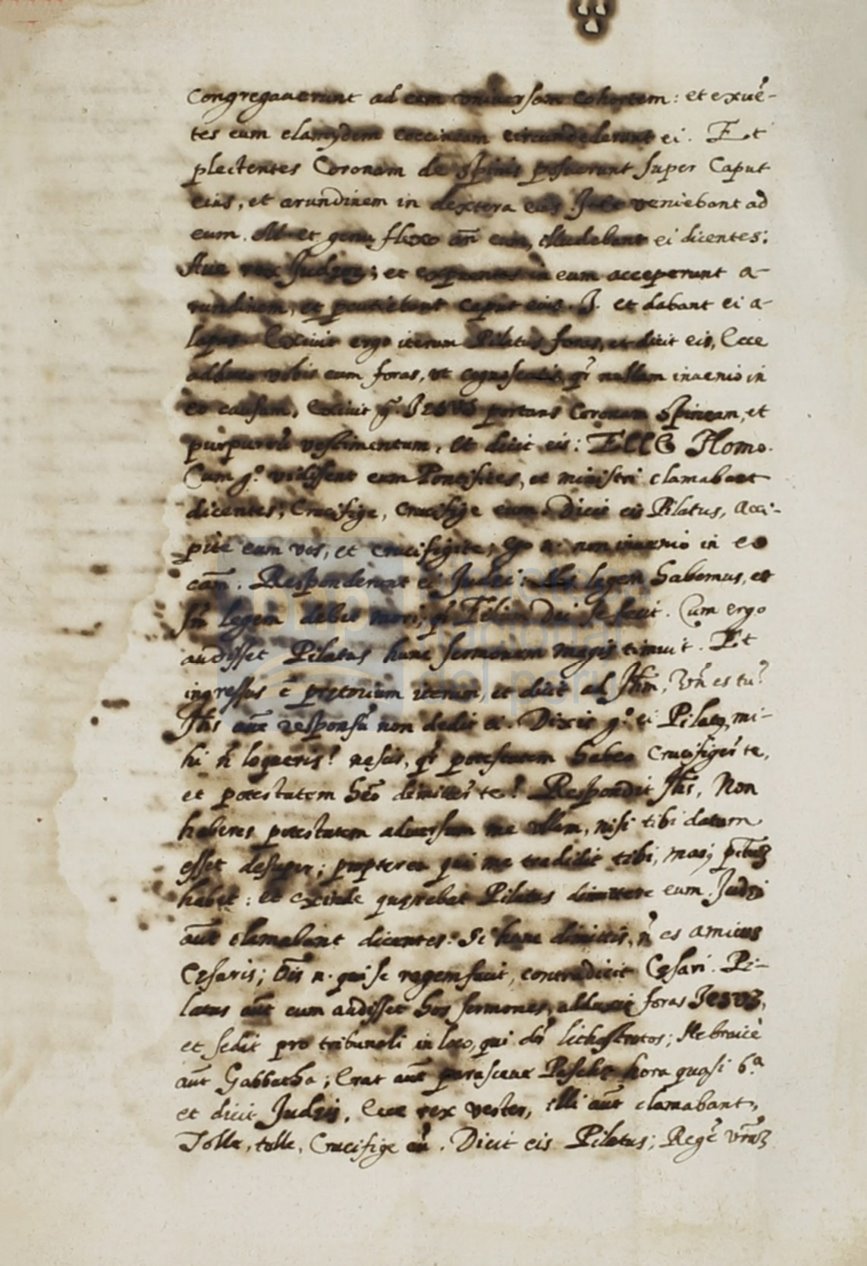 Congregauerunt ad eum vniuersam cohortem: et exuē-
tes eum clamydem coccineam circundederunt ei. Et
plectentes Coronam de spinis posuerunt super Caput
eius, et arundinem in dextera eius veniebant ad
eum. et genu flexo eum, illudebant ei dicentes:
Aue rex Judęor; et expuentes in eum acceperunt a-
rundinem, et percutiebant caput eius. et dabant ei a-
lapas. Exiuit ergo iterum Pilatus foras, et dicit eis, Ecce
adduco vobis eum foras, vt cognoscatis, qr nullam inuenio in
eo causam, Exiuit g. IESVS portans Coronam Spineam, et
purpureū vestimentum, et dicit eis: ECCE Homo.
Cum g.º vidissent eum Pontifices, et ministri clamabant
dicentes; Crucifige, Crucifige eum. Dicit eis Pilatus, Acci-
pite eum vos, et crucifigite, non inuenio in eo
cam̄. Responderunt ei Judęi: Nos legem habemus, et
sm̄ legem debet mori, qr Filium Dei se fecit. Cum ergo
audisset Pilatus hunc sermonem magis timuit. Et
ingressus ē pretorium iterum, et dicit ad Jhm, Vn̄ es tu?
Jhs aūt responsū non dedit ei. Dixit g.º ei Pilatus, mi-
hi n̄ loqueris? nescis, qr potestatem habeo Crucifiger̄ te,
et potestatem hēo dimitter̄ te? Respondit Jhs, Non
haberes potestatem aduersum me vllam, nisi tibi datum
esset desuper; propterea qui me tradidit tibi, mai pctūȝ
habet: et exinde quęrebat Pilatus dimittere eum. Judęi
aūt clamabant dicentes. Si hunc dimittis, n̄ es amicus
Cęsaris; oīs n. qui se regem facit, contradicit Cęsari. Pi-
latus aūt cum audisset hos sermones, adduxit foras IESVȜ,
et sedit pro tribunali in loco, qui dr̄ lithostrotos; Hebraicè
aūt Gabbatha; Erat aūt parasceue Paschę hora quasi 6.ª
et dicit Judęis, Ecce rex vester, illi aūt clamabant,
Tolle, tolle, Crucifige eū. Dicit eis Pilatus; Regē vr̄mȝ